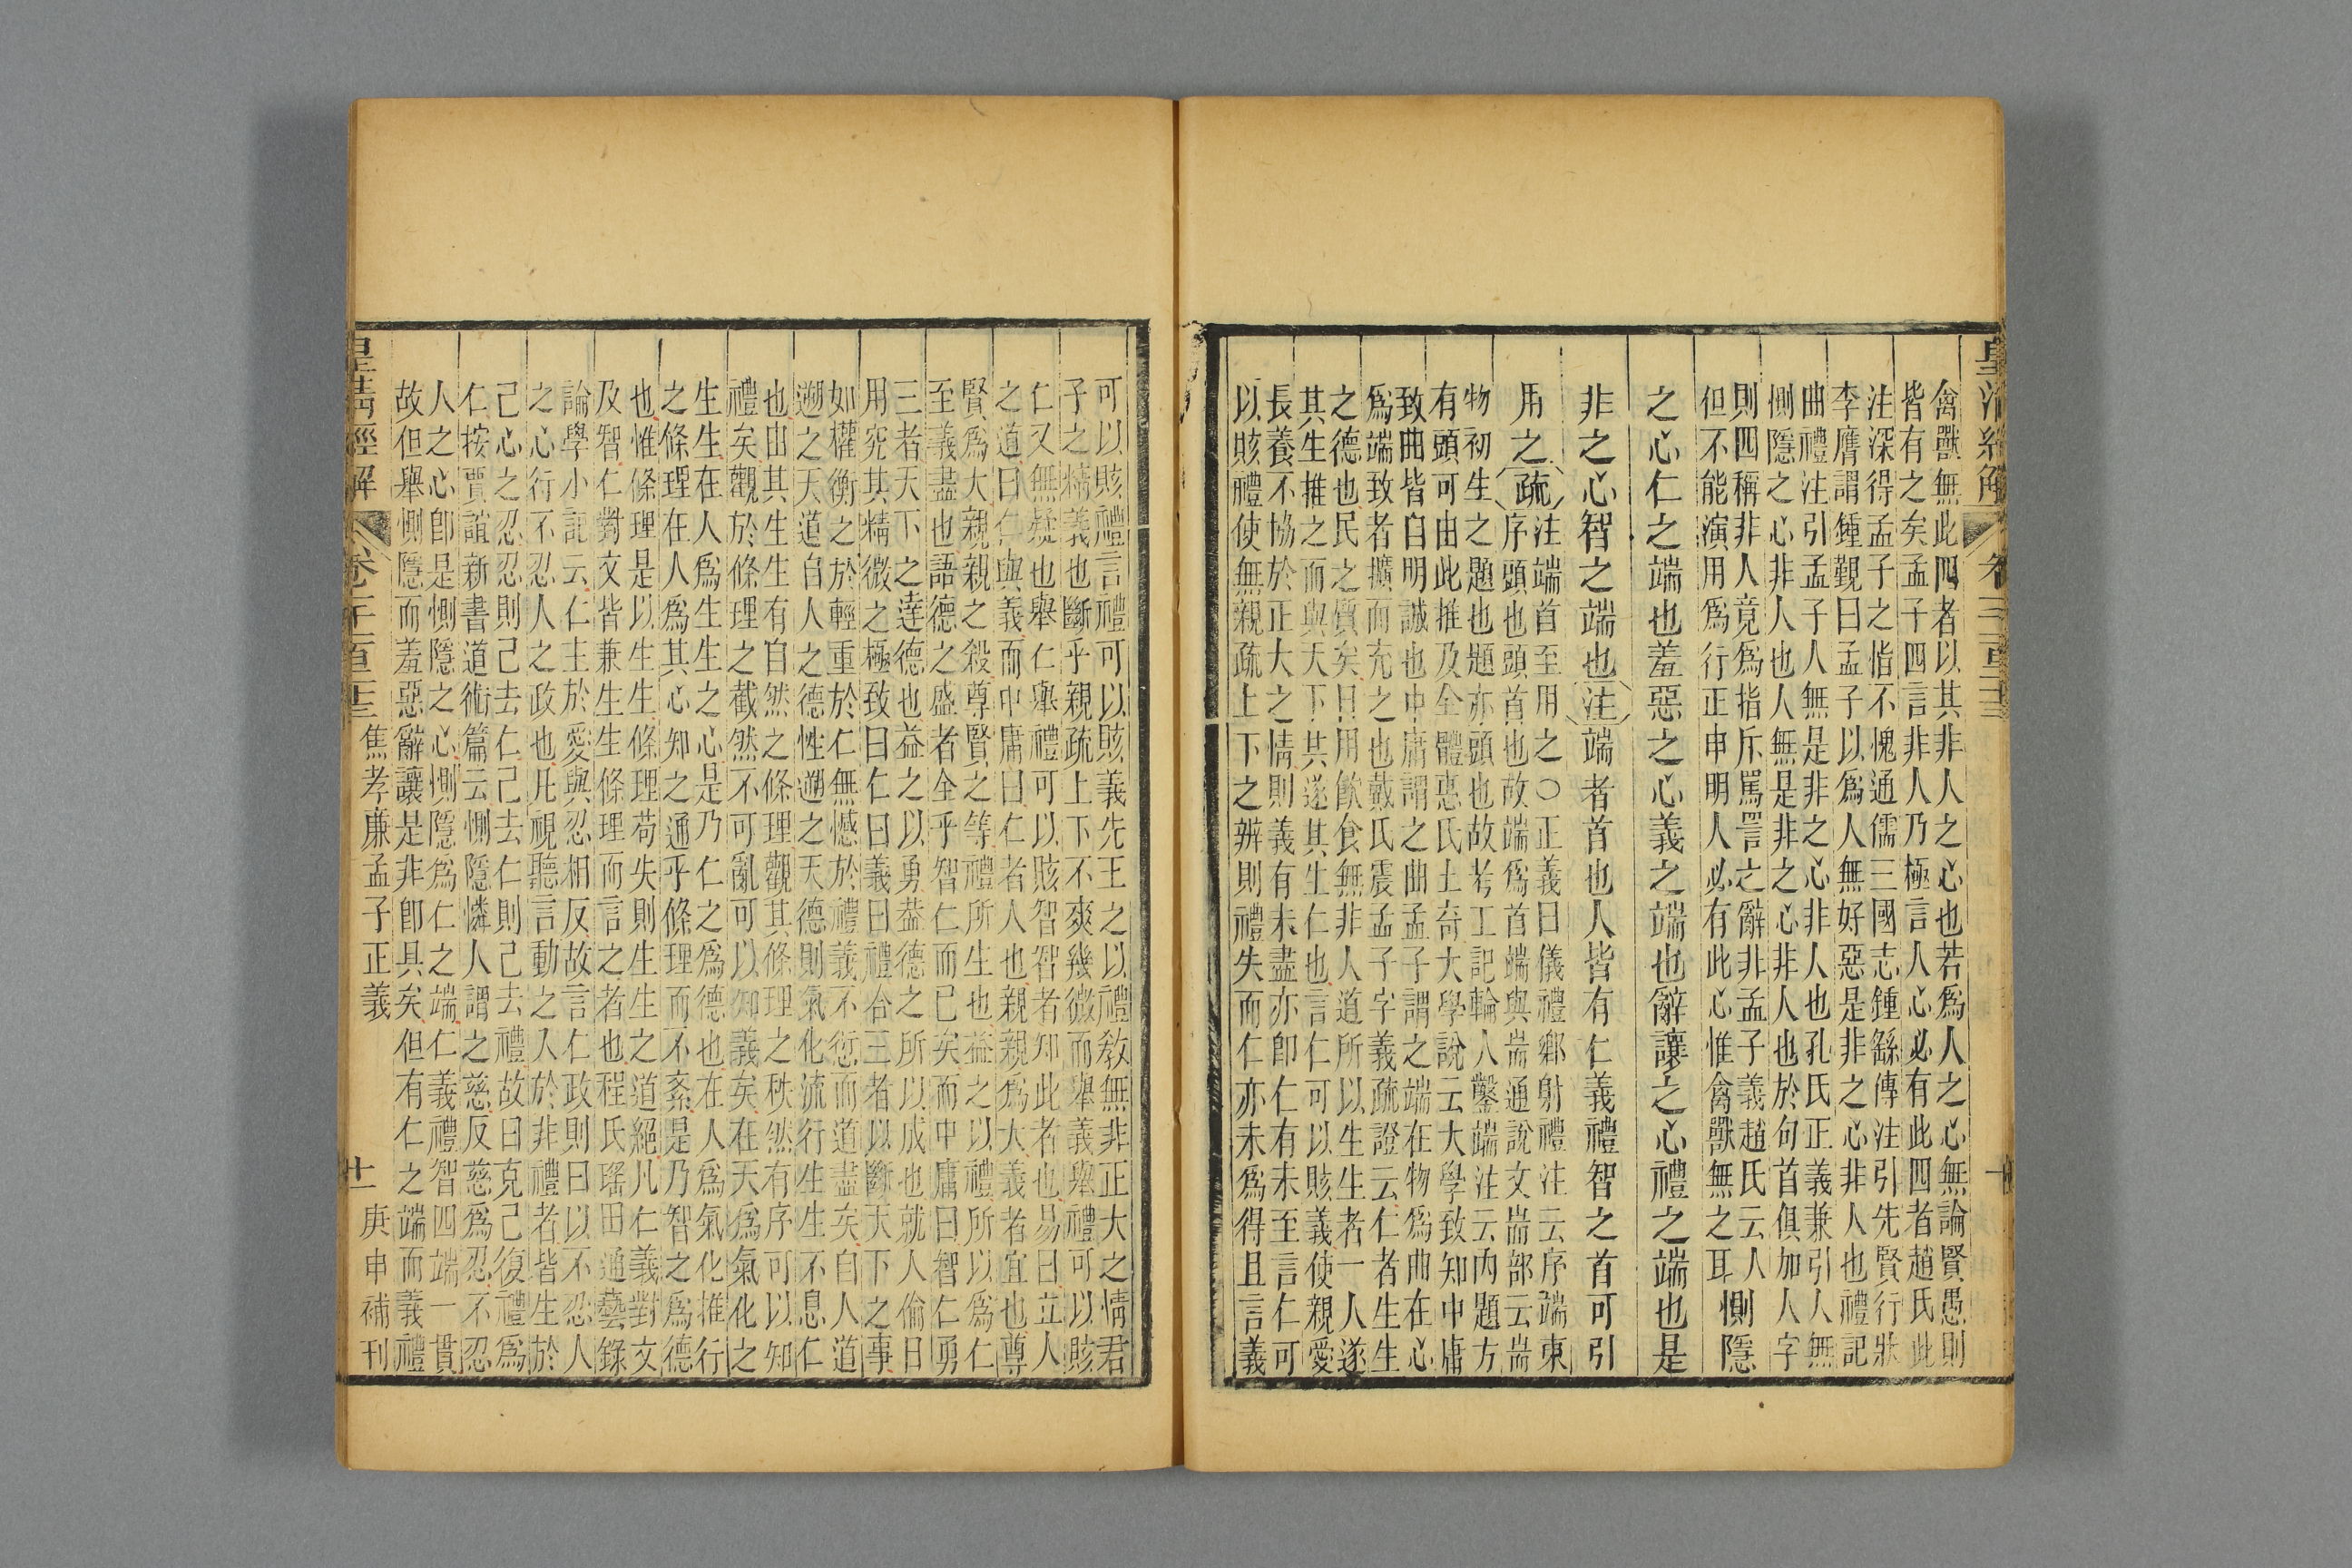 皇清經解
禽獸無此四者以其非人之心也若爲人之心無論賢愚則
皆有之矣孟子四言非人乃極言人心必有此四者趙氏此
注深得孟子之恉不愧通儒三國志鍾繇傳注引先賢行狀
李膺謂鍾覲曰孟子以爲人無好惡是非之心非人也禮記
曲禮注引孟子人無是非之心非人也孔氏正義兼引人無
惻隱之心非人也人無是非之心非人也於句首俱加人字
則四稱非人竟爲指斥罵詈之辭非孟子義趙氏云人
但不能演用爲行正申明人必有此心惟禽獸無之耳惻隱
之心仁之端也羞惡之心義之端也辭讓之心禮之端也是
非之心智之端也注端者首也人皆有仁義禮智之首可引
用之疏注端首至用之○正義曰儀禮鄉射禮注云序端東
序頭也頭首也故端爲首端與耑通說文耑部云耑
物初生之題也題亦頭也故考工記輪人鑿端注云內題方
有頭可由此推及全體惠氏士奇大學說云大學致知中庸
致曲皆自明誠也中庸謂之曲孟子謂之端在物爲曲在心
爲端致者擴而充之也戴氏震孟子字義疏證云仁者生生
之德也民之質矣日用飲食無非人道所以生生者一人遂
其生推之而與天下共遂其生仁也言仁可以賅義使親愛
長養不協於正大之情則義有未盡亦卽仁有未至言仁可
以賅禮使無親疏上下之辨則禮失而仁亦未爲得且言義
可以賅禮言禮可以賅義先王之以禮敎無非正大之情君
子之精義也斷乎親疏上下不爽幾微而舉義舉禮可以賅
仁又無疑也舉仁舉禮可以賅智智者知此者也易曰立人
之道曰仁與義而中庸曰仁者人也親親爲大義者宜也尊
賢爲大親親之殺尊賢之等禮所生也益之以禮所以爲仁
至義盡也語德之盛者全乎智仁而已矣而中庸曰智仁勇
三者天下之達德也益之以勇葢德之所以成也就人倫日
用究其精微之極致曰仁曰義曰禮合三者以斷天下之事
如權衡之於輕重於仁無憾於禮義不愆而道盡矣自人道
遡之天道自人之德性遡之天德則氣化流行生生不息仁
也由其生生有自然之條理觀其條理之秩然有序可以知
禮矣觀於條理之截然不可亂可以知義矣在天爲氣化之
生生在人爲生生之心是乃仁之爲德也在人爲氣化推行
之條理在人爲其心知之通乎條理而不紊是乃智之爲德
也惟條理是以生生條理苟失則生生之道絕凡仁義對文
及智仁對文皆兼生生條理而言之者也程氏瑤田通藝錄
論學小記云仁主於愛與忍相反故言仁政則曰以不忍人
之心行不忍人之政也凡視聽言動之入於非禮者皆生於
己心之忍忍則己去仁己去仁則己去禮故曰克己復禮爲
仁按賈誼新書道術篇云惻隱憐人謂之慈反慈爲忍不忍
人之心卽是惻隱之心惻隱爲仁之端仁義禮智四端一貫
故但舉惻隱而羞惡辭讓是非卽具矣但有仁之端而義禮
皇清經解 卷 焦孝廉孟子正義 十一 庚申補刊